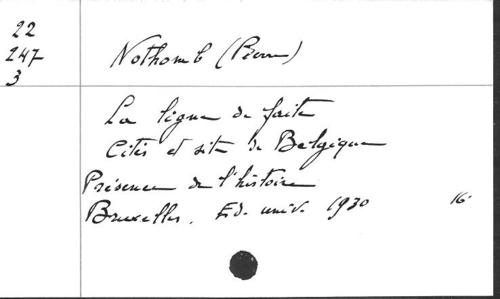 22
247
3
Nothomb (Pierre)
La ligne de faîte
Cités et site de Belgique
Présence de l'histoire
Bruxelles. Ed. univ. 1930 16°